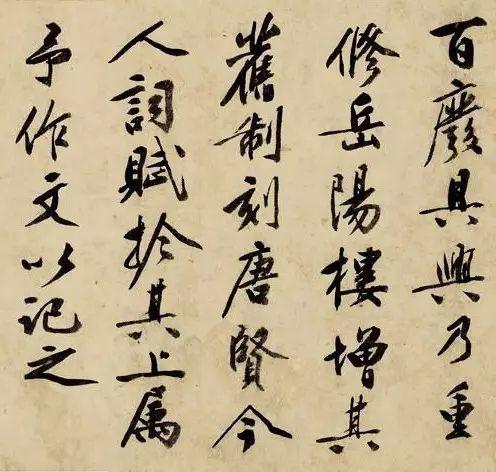 百廢具興乃重
修岳陽樓增其
舊制刻唐賢今
人詞賦於其上属
予作文以記之